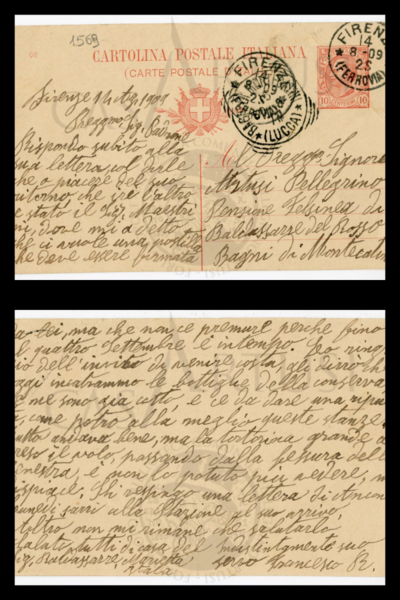 1569
CARTOLINA POSTALE ITALIANA
(CARTE POSTALE D'ITALIE)
FIRENZE
14
8-09
2S
(FERROVIA)
FIRENZE
14
8-09
2S
(FERROVIA)
(LUCCA)
10 10
Firenze 14 1909
Preggmo Sig. Padrone
Rispondo subito alla
sua lettera, col dirle
che o piacere del suo
ritorno, che
e stato il Sig. Maestri
dove mi a detto
che ci vuole una
che deve essere firmata
Al Preggo Signore
Matusi Pellegrino
Pensione Felsinea di
Baldassarre del Rosso
Bagni di Montecatini
da Lei, ma che non ce premure perche fino
al quattro Settembre e in tempo. La ring
io dell'invito di venire costa, gli dirò che
oggi incatramo le bottiglie della conserva
e me sono gia cotto, e ce da dare una
come potro alla meglio queste stanze.
tutto andava bene, ma la tortorica grande a
preso il volo, passando dalla fessura della
finestra, e non lo potuto piu vedere, mi
dispiace. Gli una lettera di
lunedi sarri alla Stazione al suo arrivo,
altro non mi rimane che salutarlo
salato tutti di casa del distintamente suo
Sig. Baldassarre, Marietta servo Francesco R.